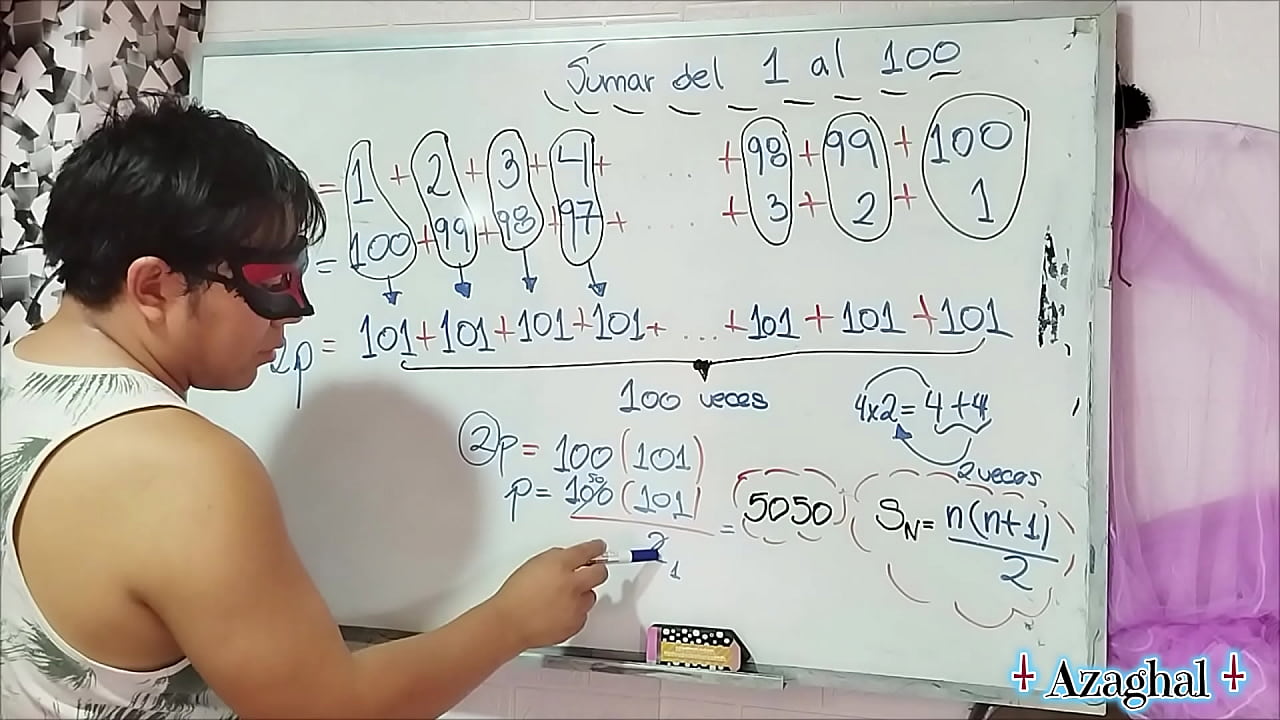 Sumar del 1 al 100
= 1 + 2 + 3 + 4 + ..... + 98 + 99 + 100
= 100 + 99 + 98 + 97 + ..... + 3 + 2 + 1
2p = 101 + 101 + 101 + 101 + ... + 101 + 101 + 101
100 veces
4x2 = 4 + 4
2 veces
2p = 100 (101)
50
p = 100 (101)
2
1
= 5050
S_N = n(n+1)
2
Azaghal